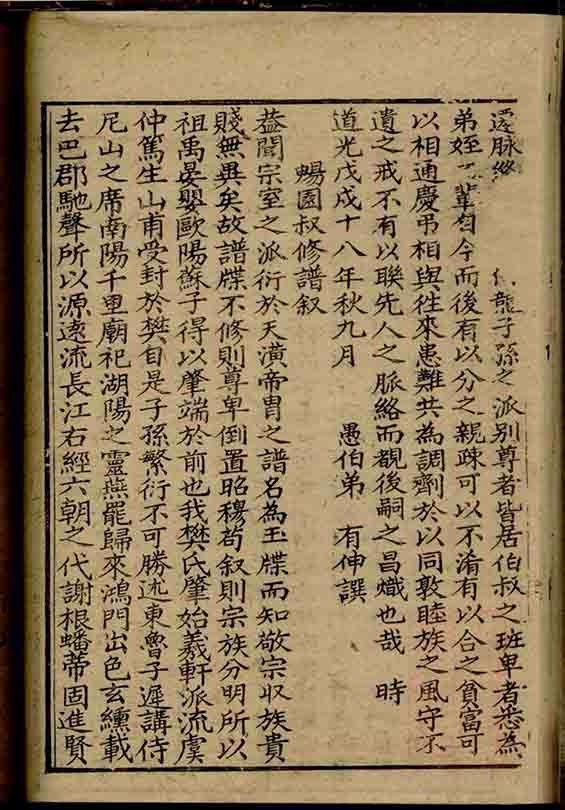 遠脉絡龍子孫之派別尊者皆居伯叔之班卑者悉為
弟姪輩自今而後有以分之親疎可以不淆有以合之貧富可
以相通慶弔相與徃來患難共為調劑於以同敦睦族之風守不
遺之戒不有以聯先人之脈絡而覩後嗣之昌熾也哉 時
道光戊戌十八年秋九月 愚伯弟 有伸譔
暢園叔修譜叙
蓋聞宗室之派衍於天潢帝胄之譜名為玉牒而知敬宗収族貴
賤無異矣故譜牒不修則尊卑倒置昭穆苟叙則宗族分明所以
祖禹晏嬰歐陽蘇子得以肇端於前也我樊氏肇始羲軒派流虞
仲篤生山甫受封於樊自是子孫繁衍不可勝述東魯子遲講侍
尼山之席南陽千里廟祀湖陽之靈燕罷歸來鴻門出色玄纁載
去巴郡馳聲所以源遠流長江右經六朝之代謝根蟠蒂固進賢